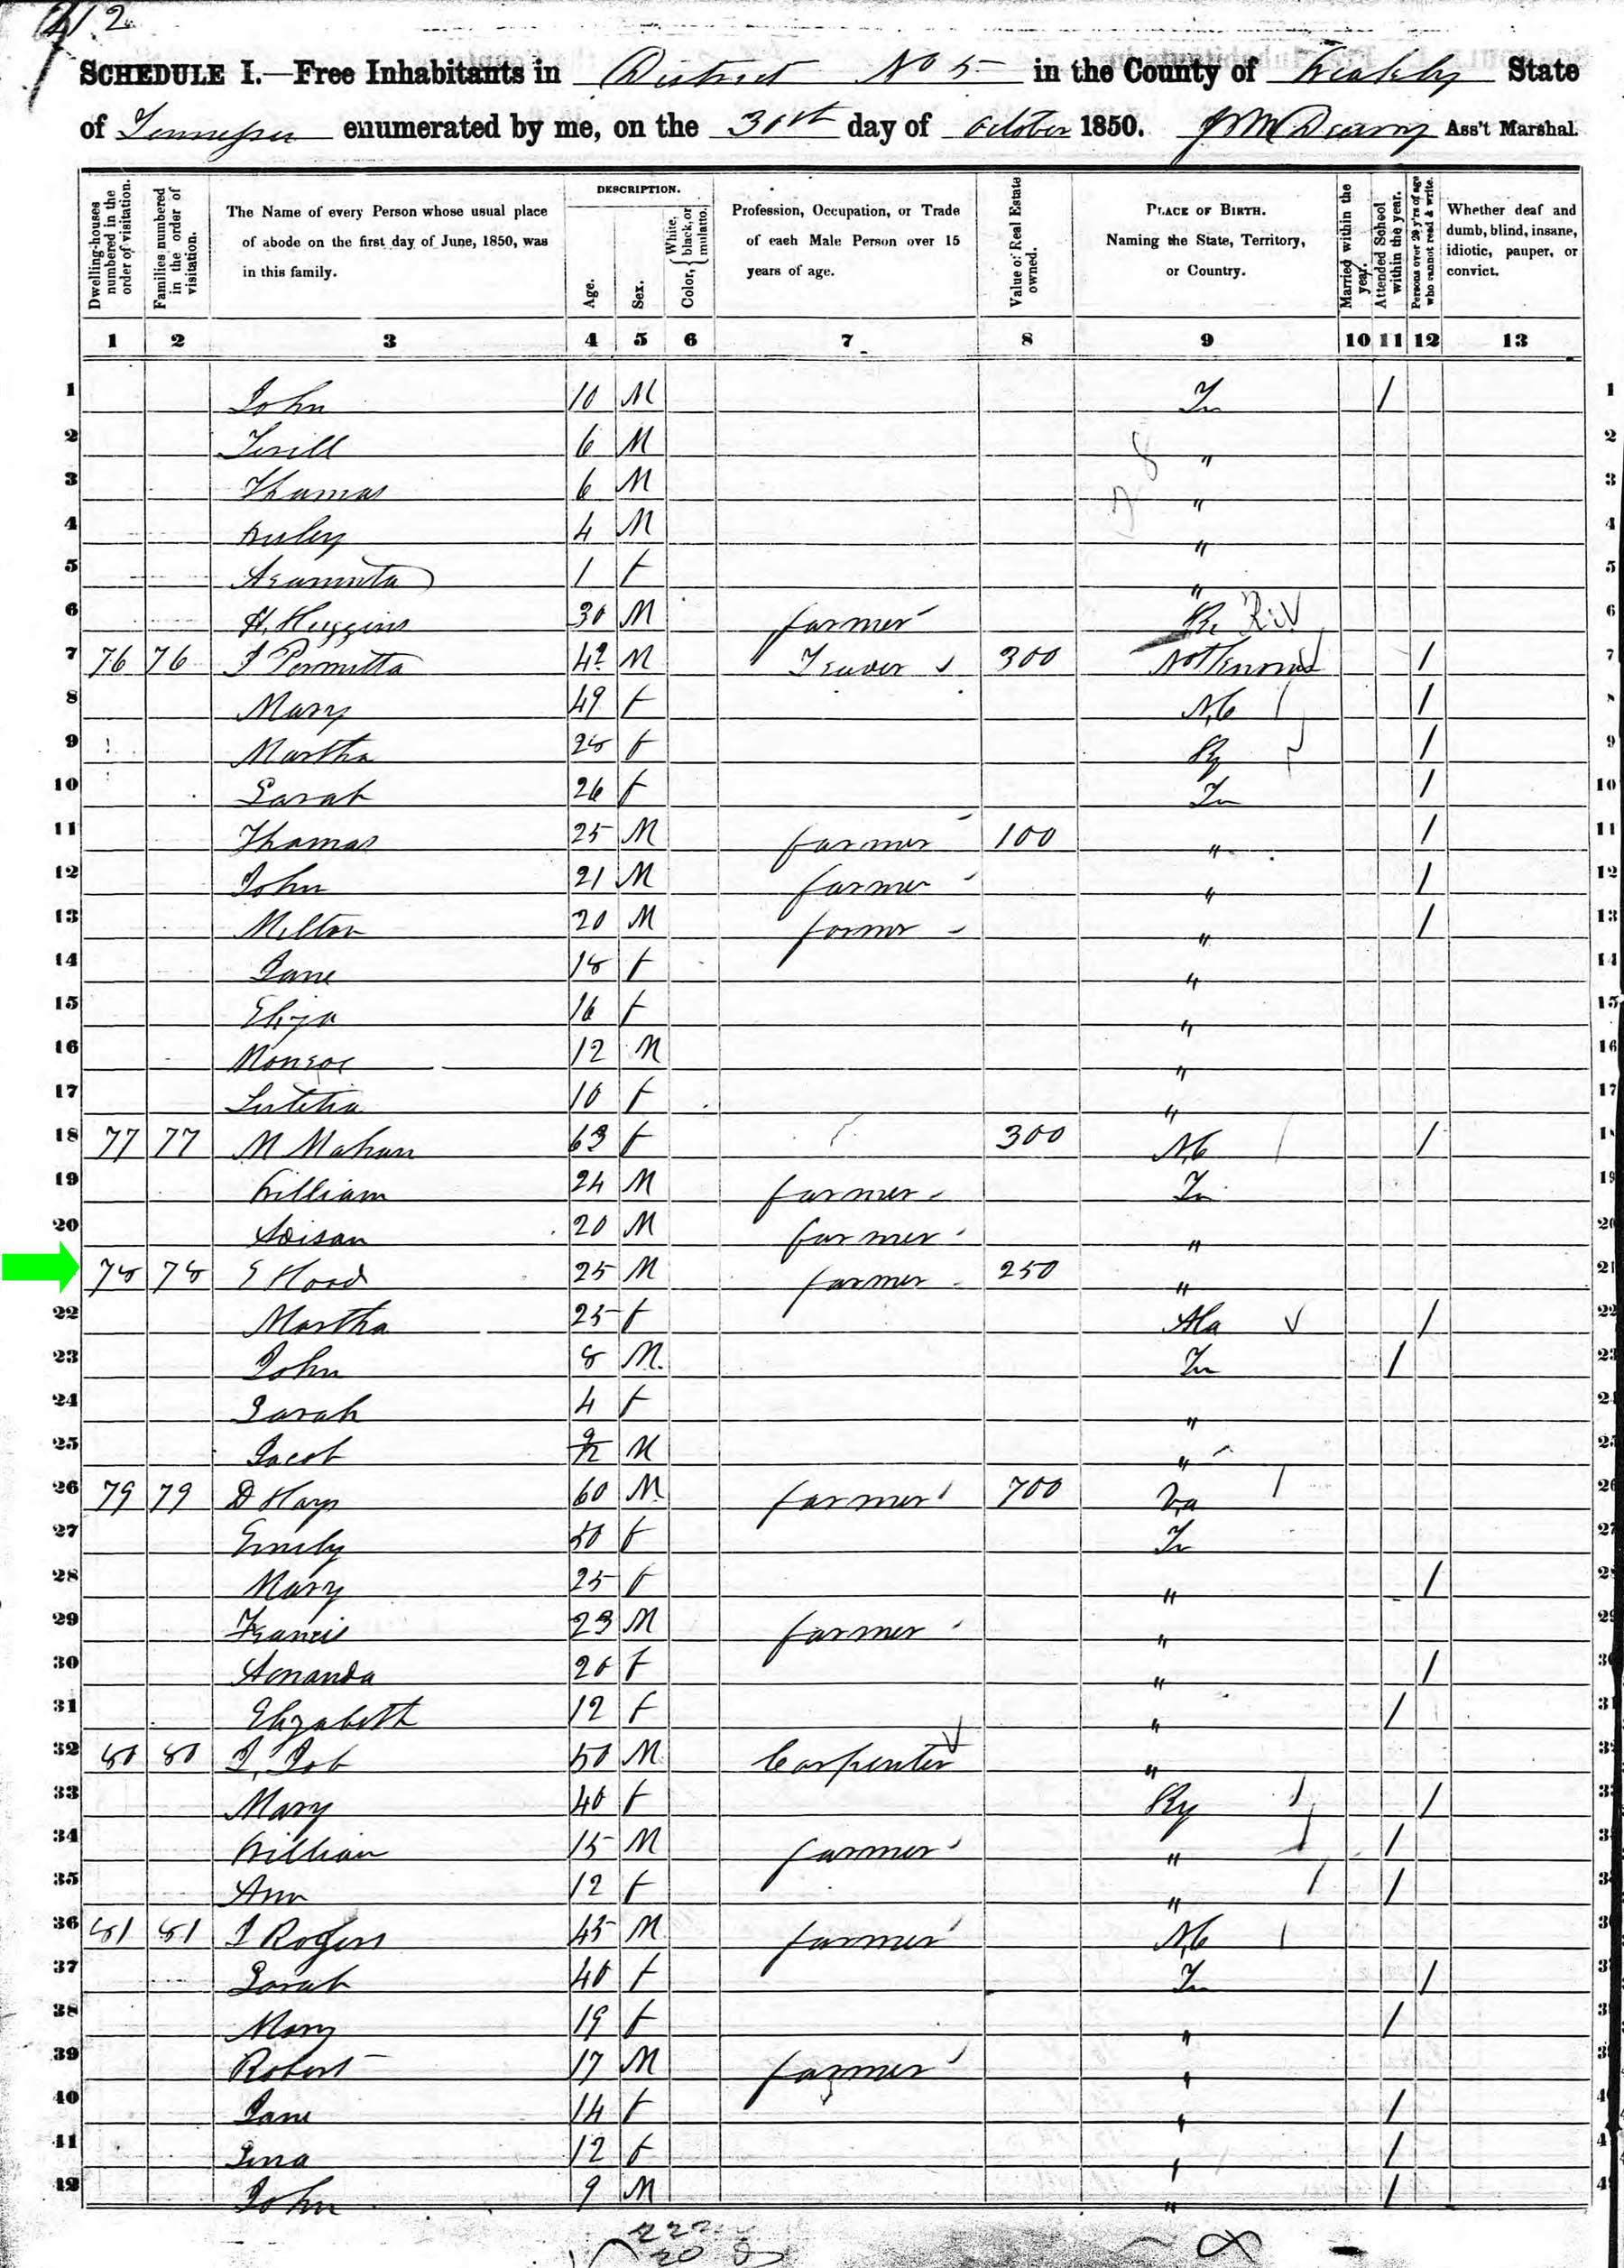 212
SCHEDULE I.—Free Inhabitants in District No 5 in the County of Weakley State
of Tennessee enumerated by me, on the 30th day of October 1850. Ass't Marshal.
Dwelling-houses numbered in the order of visitation.
Families numbered in the order of visitation.
The Name of every Person whose usual place of abode on the first day of June, 1850, was in this family.
DESCRIPTION.
Age.
Sex.
Color, { White, black, or mulatto.
Profession, Occupation, or Trade of each Male Person over 15 years of age.
Value of Real Estate owned.
PLACE OF BIRTH. Naming the State, Territory, or Country.
Married within the year.
Attended School within the year.
Persons over 20 y'rs of age who cannot read & write.
Whether deaf and dumb, blind, insane, idiotic, pauper, or convict.
1 2 3 4 5 6 7 8 9 10 11 12 13
1 John 10 M Tn / 1
2 6 M " 2
3 Thomas 6 M " 3
4 4 M " 4
5 1 f " 5
6 H. Huggins 30 M farmer 6
7 76 76 M 300 Not Known / 7
8 Mary 49 f NC / 8
9 Martha 28 f Ky / 9
10 Sarah 26 f Tn / 10
11 Thomas 25 M farmer 100 " / 11
12 John 21 M farmer " / 12
13 Milton 20 M farmer " / 13
14 Jane 18 f " 14
15 Eliza 16 f " 15
16 Monroe 12 M " 16
17 Lutitia 10 f " 17
18 77 77 M Mahan 63 f 300 NC / 18
19 William 24 M farmer Tn 19
20 20 M farmer " 20
21 78 78 E Hood 25 M farmer 250 " 21
22 Martha 25 f Ala / 22
23 John 8 M Tn / 23
24 Sarah 4 f " 24
25 Jacob 9/12 M " 25
26 79 79 D Harp 60 M farmer 700 Va 26
27 Emily 50 f Tn 27
28 Mary 25 f " / 28
29 Francis 23 M farmer " 29
30 Amanda 20 f " / 30
31 Elizabeth 12 f " / 31
32 80 80 J, Job 50 M Carpenter " 32
33 Mary 40 f Ky / 33
34 William 15 M farmer " / 34
35 Ann 12 f " / 35
36 81 81 J Rogers 45 M farmer NC 36
37 Sarah 40 f Tn / 37
38 Mary 19 f " / 38
39 Robert 17 M farmer " 39
40 Jane 14 f " / 40
41 12 f " / 41
42 John 9 M " / 42